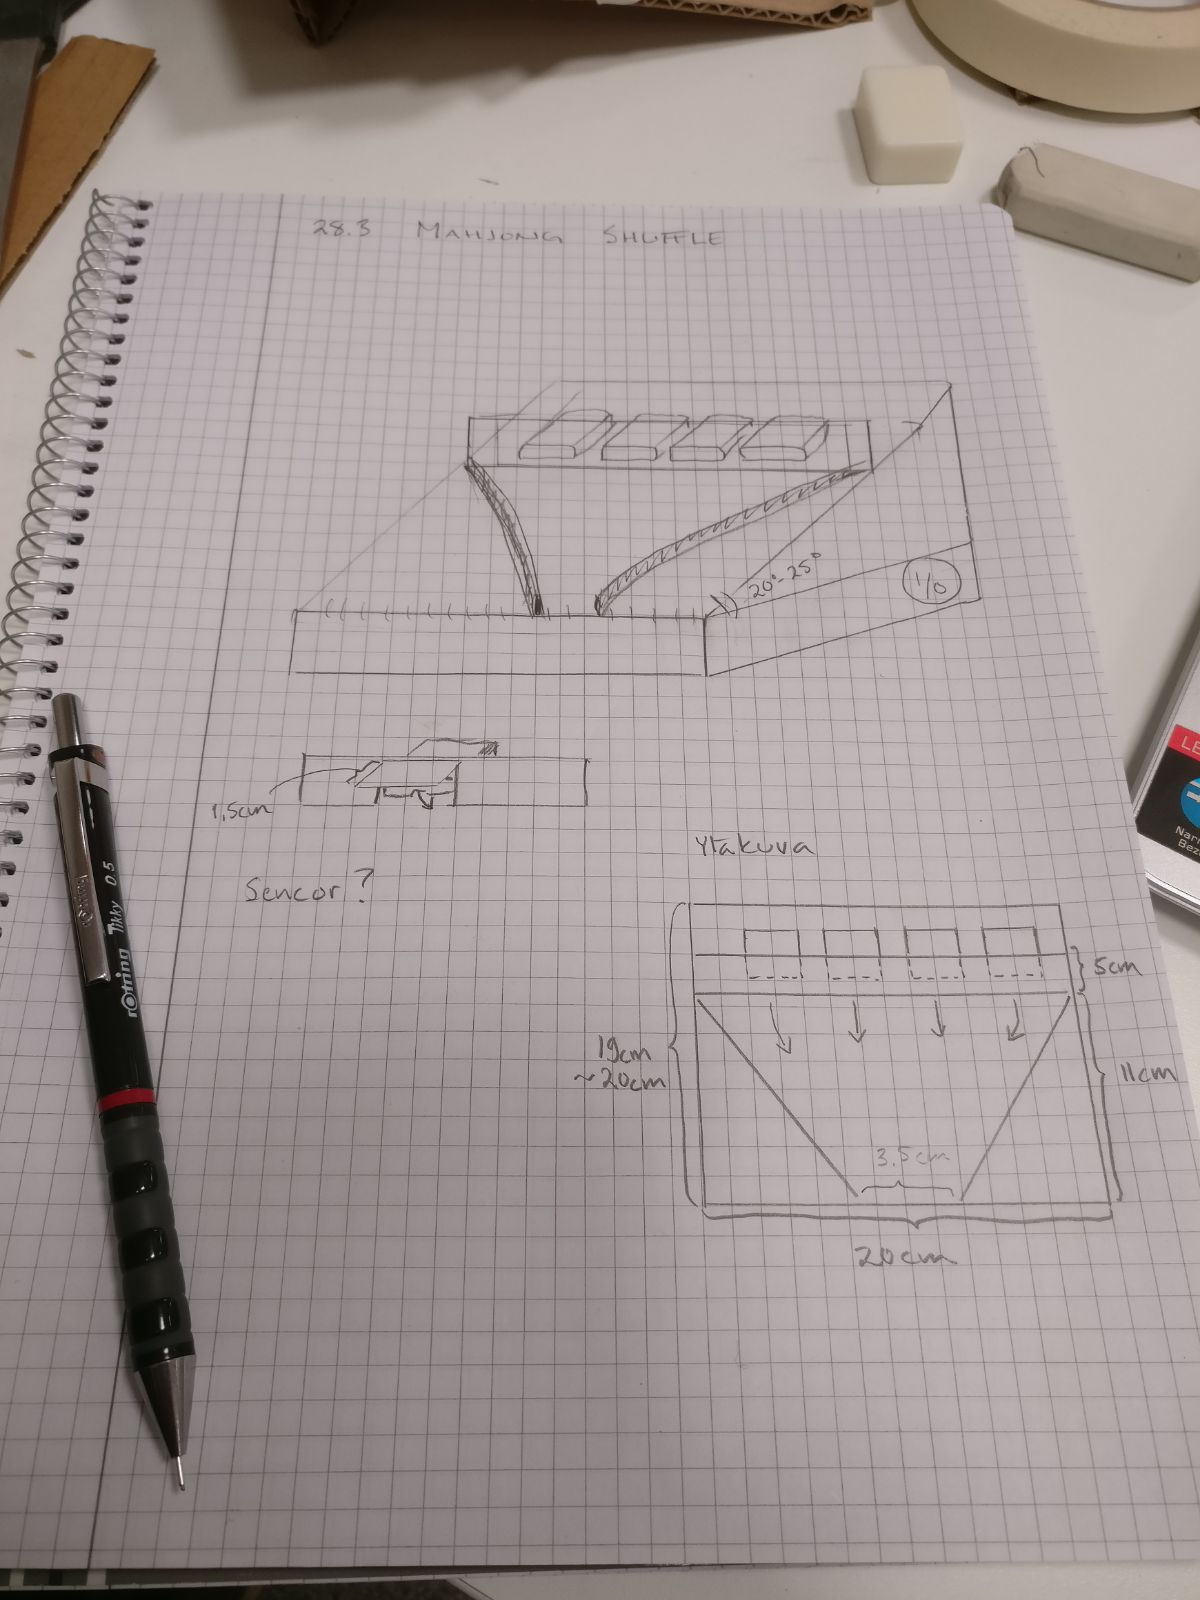 28.3 MAHJONG SHUFFLE
20°-25°
1/0
1,5cm
Sencor?
Yläkuva
5cm
19cm
~20cm
11cm
3.5cm
20cm
rOtring Tikky 0.5
rOtring
LE
Narr
Bez